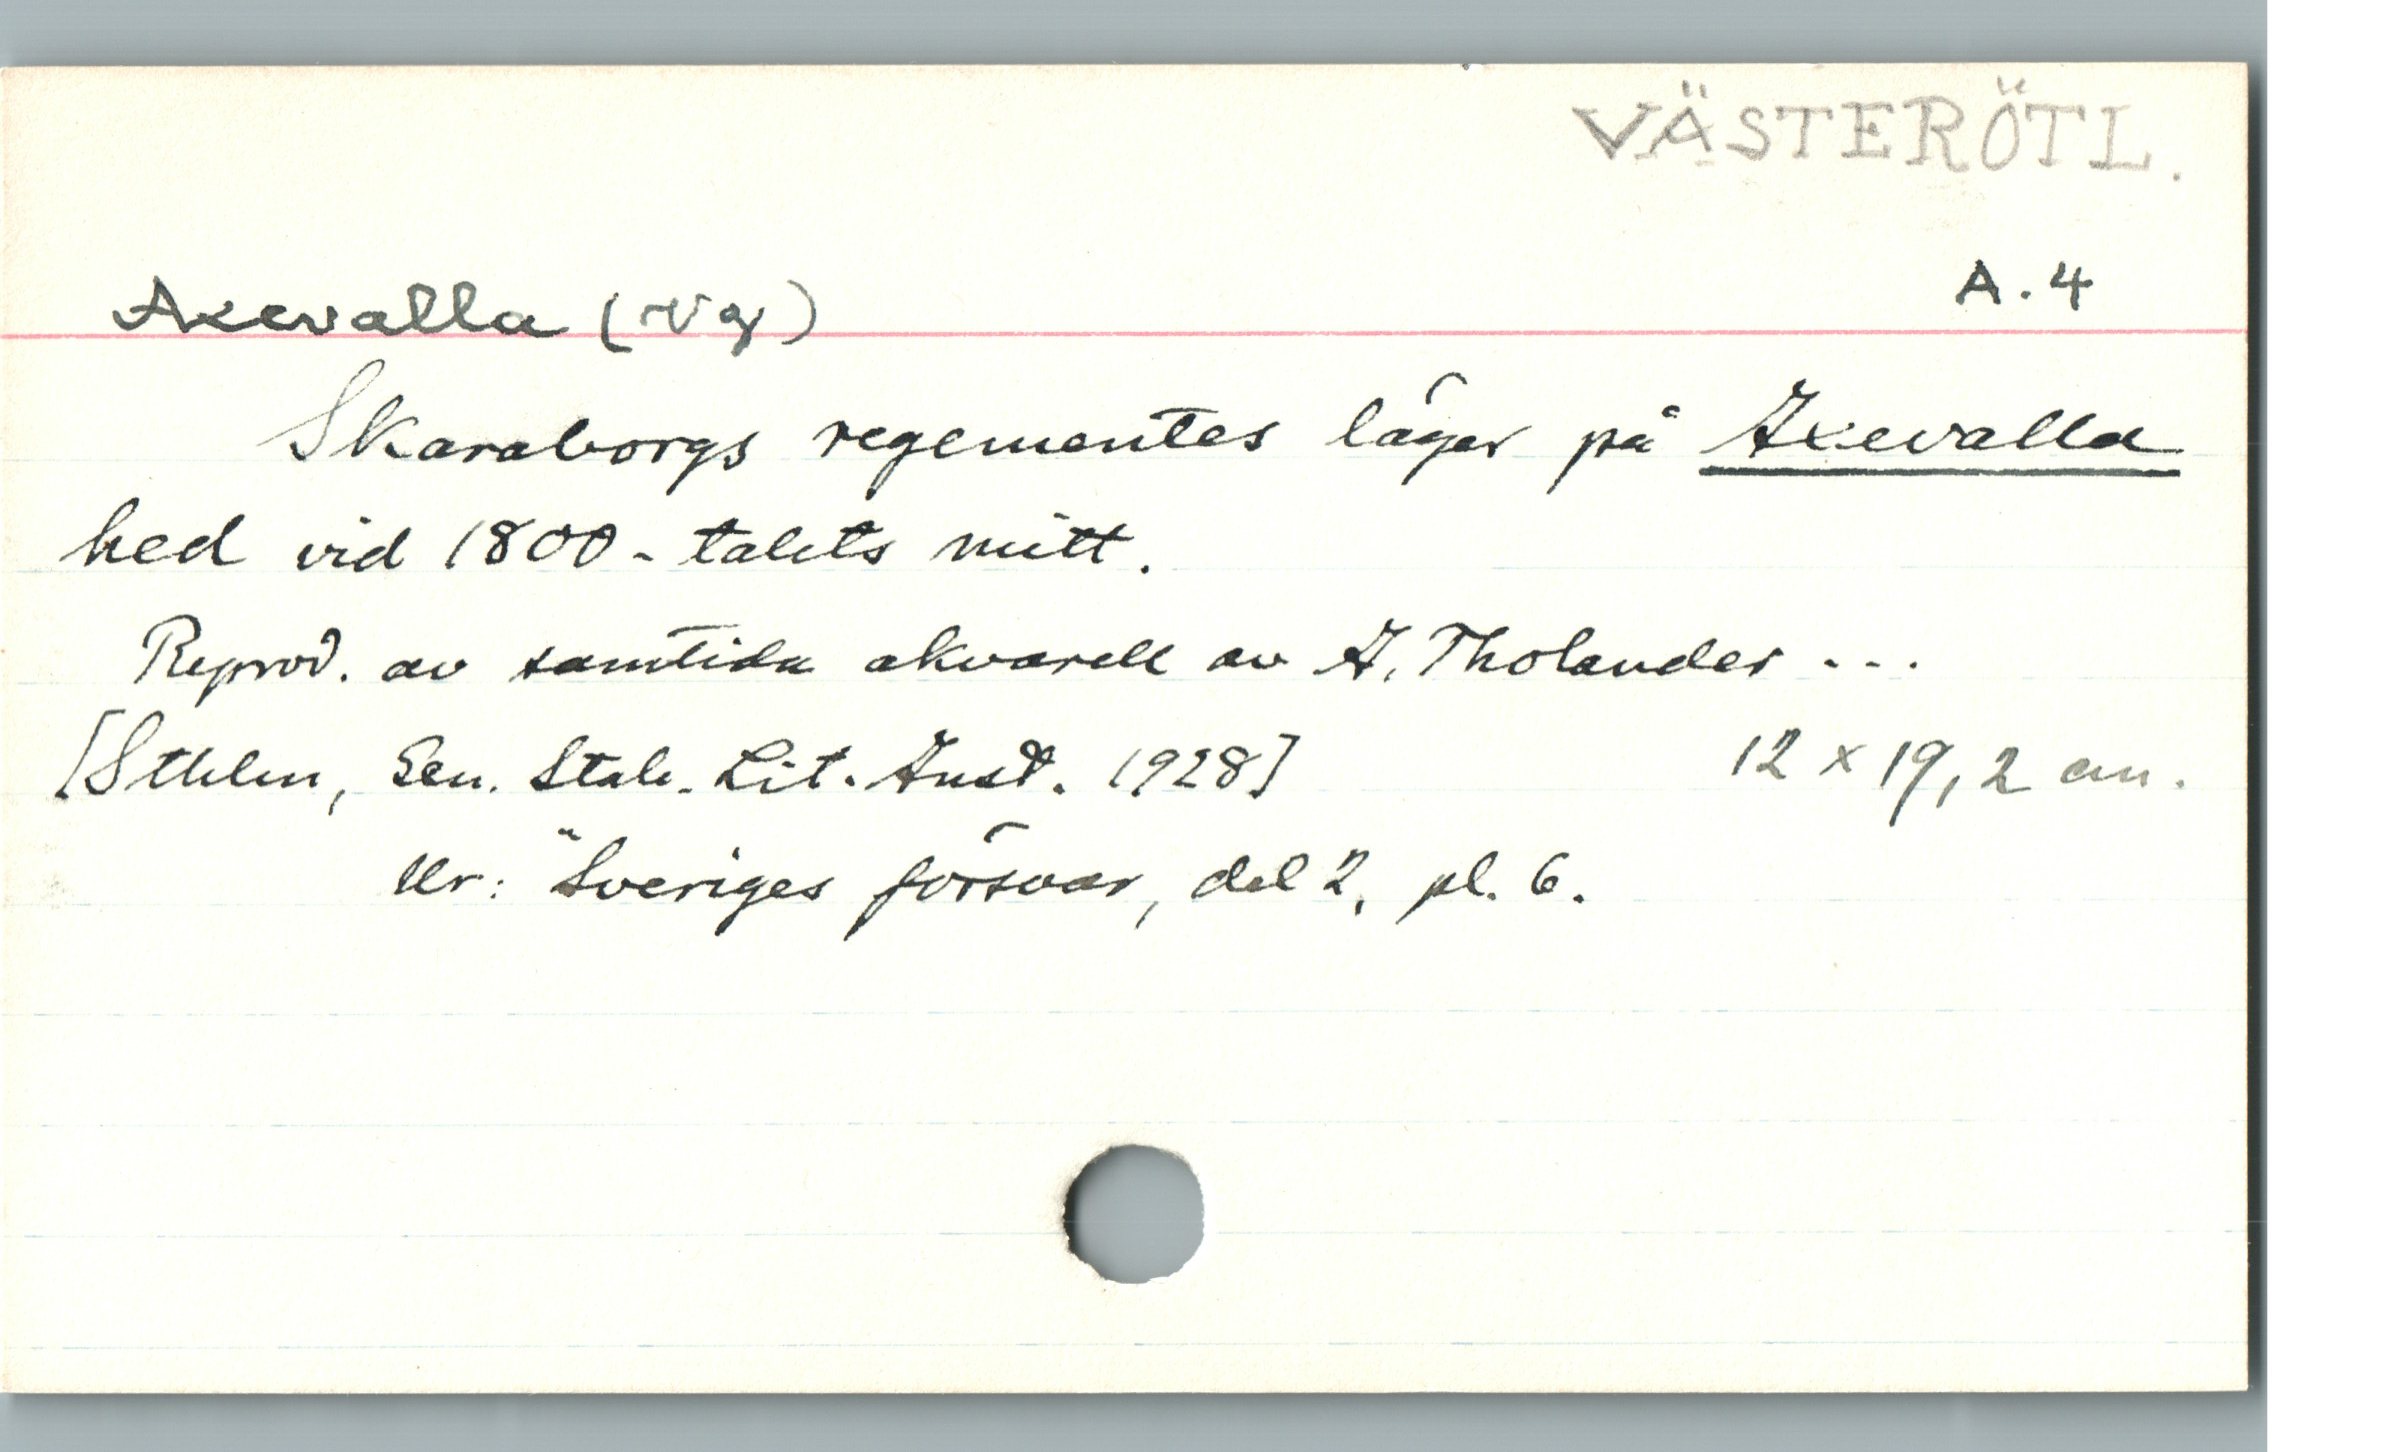 VÄSTERÖTL.
A.4
Axevalla (Vg)
Skaraborgs regementes läger på Axevalla
hed vid 1800-talets mitt.
Reprod. av samtida akvarell av A. Tholander ...
[Sthlm, Gen. Stab. Lit. Anst. 1928] 12 x 19,2 cm.
Ur: "Sveriges försvar, del 2, pl. 6.